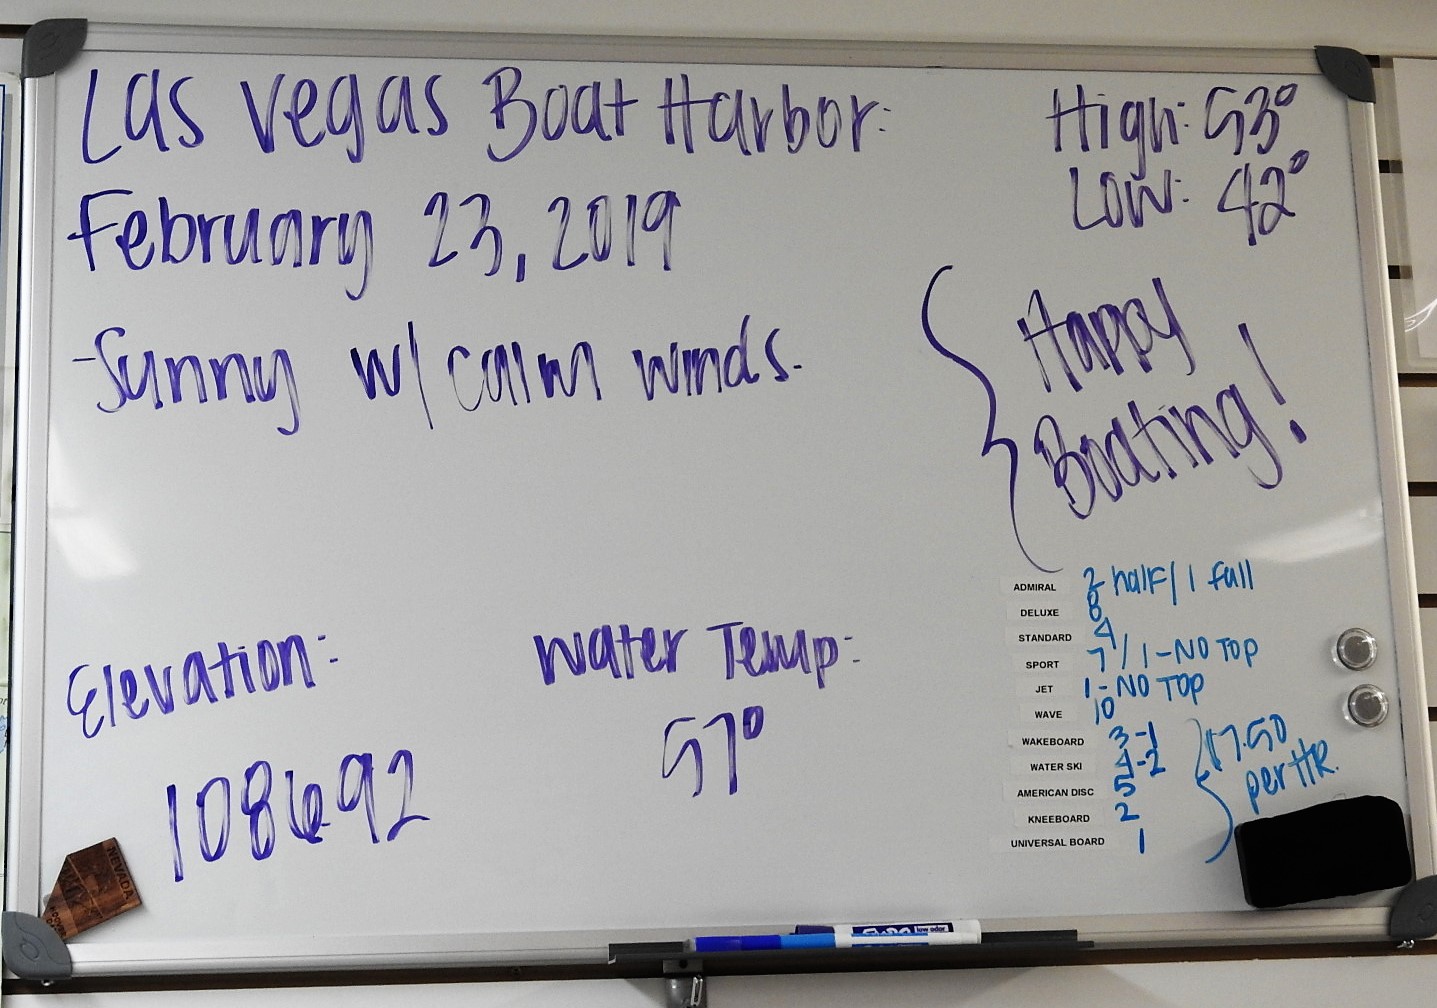 Las Vegas Boat Harbor:
February 23, 2019
-Sunny w/ calm winds.
High: 53°
Low: 42°
Happy
Boating!
Elevation:
108692
Water Temp:
57°
ADMIRAL 2 half/1 full
DELUXE 8
STANDARD 4
SPORT 7/1-NO TOP
JET 1-NO TOP
WAVE 10
WAKEBOARD 3-1
WATER SKI 4-2
AMERICAN DISC 5
KNEEBOARD 2
UNIVERSAL BOARD 1
per HR.
NEVADA
low odor